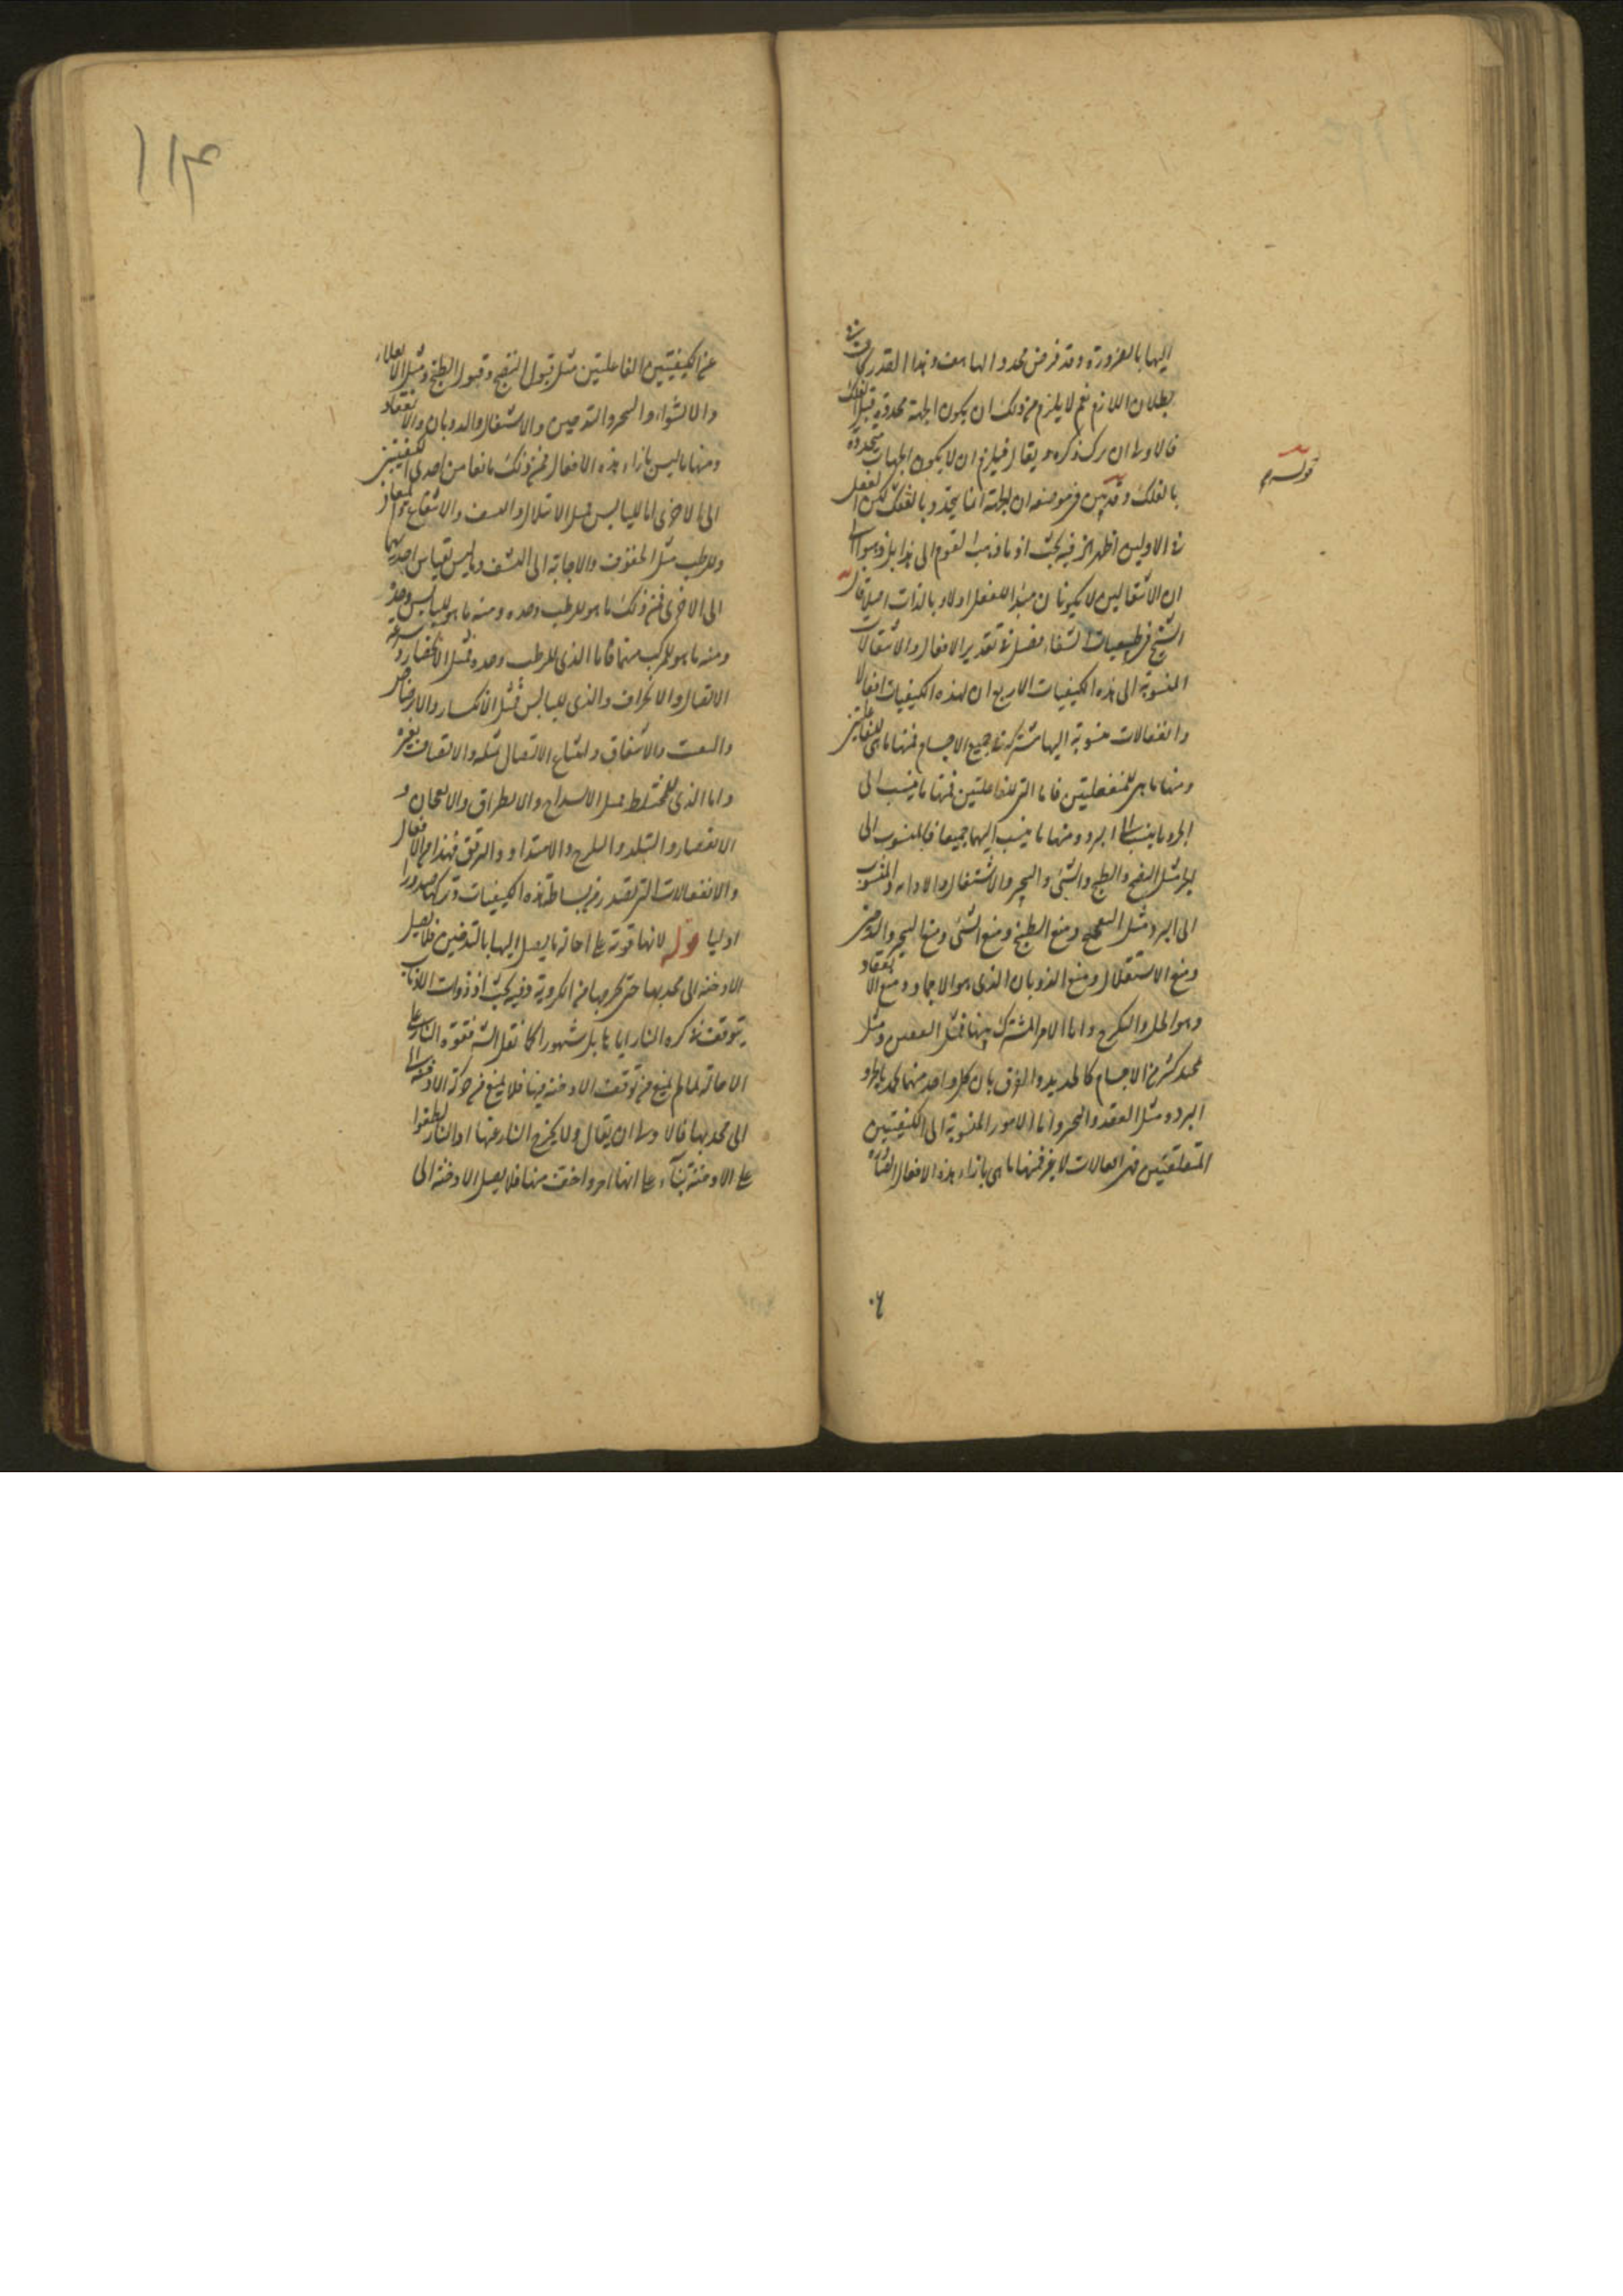 اليها بالضرورة وقد فرض محددا لها هف وهذا القدر كاف في
بطلان اللازم نعم لا يلزم من ذلك ان يكون الجهة محددة قبل الفلك
فالاولى ان يترك ذكره ويقال فيلزم ان لا يكون الجهات متحددة
بالفلك وقد تبين في موضعه ان الجهة انما يتحدد بالفلك لكن الفعل
في الاوليين اظهر الخ فيه بحث اذ ما ذهب القوم الى هذا بل ذهبوا الى
ان الانفعاليين لا يكونان مبدا للفعل اولا وبالذات اصلا قال
الشيخ في طبيعيات الشفاء فصل في تقدير الافعال والانفعالات
المنسوبة الى هذه الكيفيات الاربع ان لهذه الكيفيات افعالا
وانفعالات منسوبة اليها تشترك في جميع الاجسام فمنها ما هي للفاعلتين
ومنها ما هي للمنفعلتين فاما التي للفاعلتين فمنها ما ينسب الى
الحر وما ينسب الى البرد ومنها ما ينسب اليهما جميعا فالمنسوب الى
الحر مثل النضج والطبخ والشي والتبخير والاشتعال والاذابة والمنسوب
الى البرد مثل التفجيج ومنع الطبخ ومنع الشي ومنع التبخير والتدخين
ومنع الاشتعال ومنع الذوبان الذي هو الاجماد ومنع الانعقاد
وهو الحل والتكرج واما الامر المشترك بينهما فمثل التعفين ومثل
تجميد كثير من الاجسام كالحديد والقرن بان كل واحد منهما يجمد بالحر و
البرد ومثل العقد والتخثير واما الامور المنسوبة الى الكيفيتين
المنفعلتين فهي انفعالات لا غير فمنها ما هي بازاء هذه الافعال الصادرة
قوله م
عن الكيفيتين الفاعلتين مثل قبول النضج وقبول الطبخ ومثل الانقلاء
والانشواء والتبخر والتدخين والاشتعال والذوبان والانعقاد
ومنها ما ليس بازاء هذه الافعال فمن ذلك ما يقاس من احدى الكيفيتين
الى الاخرى اما لليابس فمثل الابتلال والنشف والانتقاع والميعان
وللرطب مثل الجفوف والاجابة الى النشف وما ليس بقياس احديهما
الى الاخرى فمن ذلك ما هو للرطب وحده ومنه ما هو لليابس وحده
ومنه ما هو للمركب منهما فاما الذي للرطب وحده فمثل الانحصار وسرعة
الاتصال والانخراق والذي لليابس فمثل الانكسار والارضاض
والتفتت والانشقاق وامتناع الاتصال بمثله والالتصاق بغيره
واما الذي للمختلط فمثل الانشداخ والانطراق والانعجان و
الانعصار والتلبد والتلزج والامتداد والترقق فهذه هي الافعال
والانفعالات التي تصدر عن بساطة هذه الكيفيات وتركبها صدورا
اوليا قوله لانها قوية على احالة ما يصل اليها بالتدخين فلا يصل
الادخنة الى محدبها حتى تخرجها من الكروية وفيه بحث اذ ذوات الاذناب
يتوقف في كرة النار اياما بل شهورا كما نقل الشيخ فقوة النار على
الاحالة لما لم يمنع من توقف الادخنة فيها فلا يمنع من حركة الادخنة الى
الى محدبها فالاولى ان يقال ولا يخرج النار عنها اذ النار لطفوا
على الادخنة بناء على انها احر واخف منها فلا يصل الادخنة الى